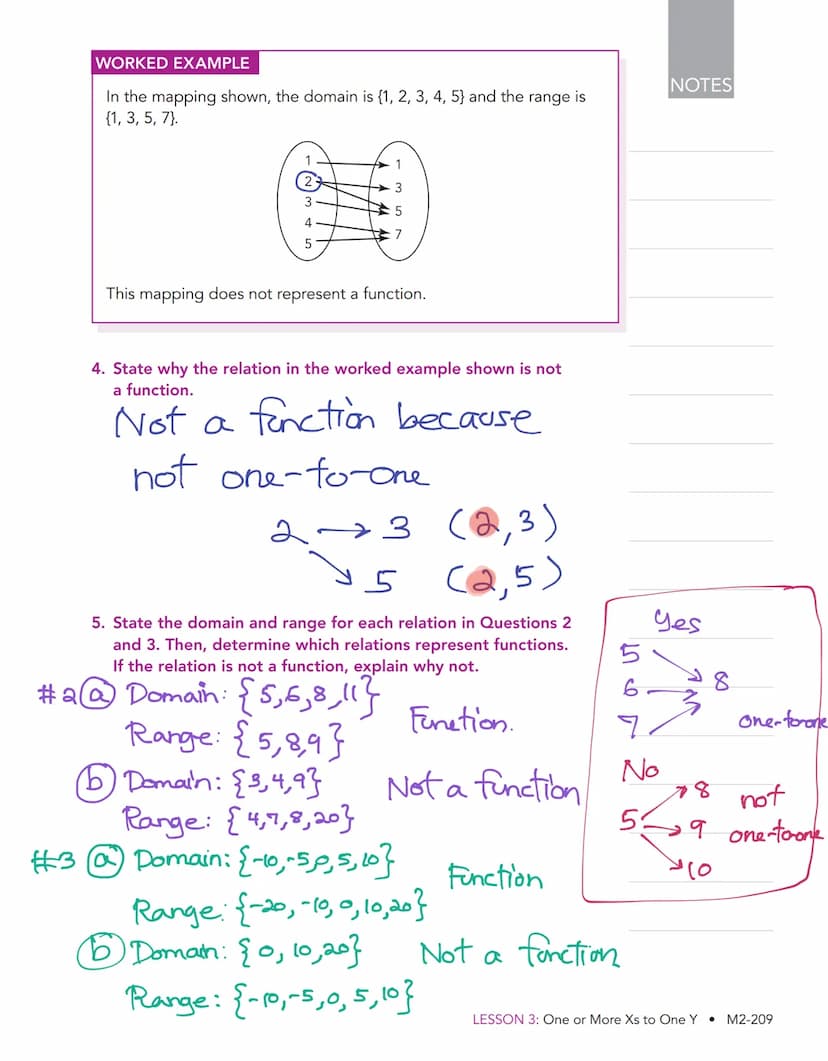 NOTES
WORKED EXAMPLE
In the mapping shown, the domain is {1, 2, 3, 4, 5} and the range is
{1, 3, 5, 7}.
1 1
2 3
3 5
4 7
5
This mapping does not represent a function.
4. State why the relation in the worked example shown is not
a function.
Not a function because
not one-to-one
2 → 3 (2,3)
5 (2,5)
5. State the domain and range for each relation in Questions 2
and 3. Then, determine which relations represent functions.
If the relation is not a function, explain why not.
#2 a Domain: {5,6,8,11}
Range: {5,8,9}
Function.
b Domain: {3,4,9}
Range: {4,7,8,20}
Not a function
#3 a Domain: {-10,-5,0,5,10}
Function
Range: {-20,-10,0,10,20}
b Domain: {0,10,20}
Not a function
Range: {-10,-5,0,5,10}
Yes
5
6 8
7 one-to-one
No
8 not
5 9 one-to-one
10
LESSON 3: One or More Xs to One Y • M2-209